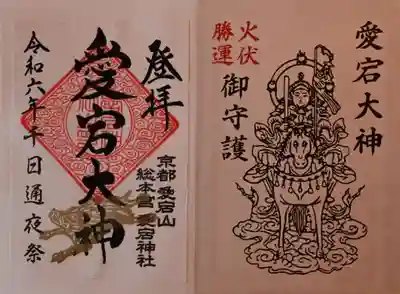 登拝
愛宕大神
令和六年千日通夜祭
京都 愛宕山
総本宮 愛宕神社
愛宕大神
火伏
勝運
御守護